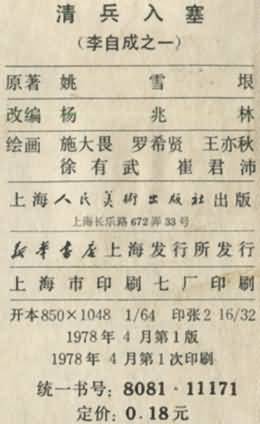 清兵入塞
(李自成之一)
原著 姚雪垠
改编 杨兆林
绘画 施大畏 罗希贤 王亦秋
徐有武 崔君沛
上海人民美术出版社出版
上海长乐路672弄33号
新华书店上海发行所发行
上海市印刷七厂印刷
开本850×1048 1/64 印张2 16/32
1978年4月第1版
1978年4月第1次印刷
统一书号：8081·11171
定价：0.18元